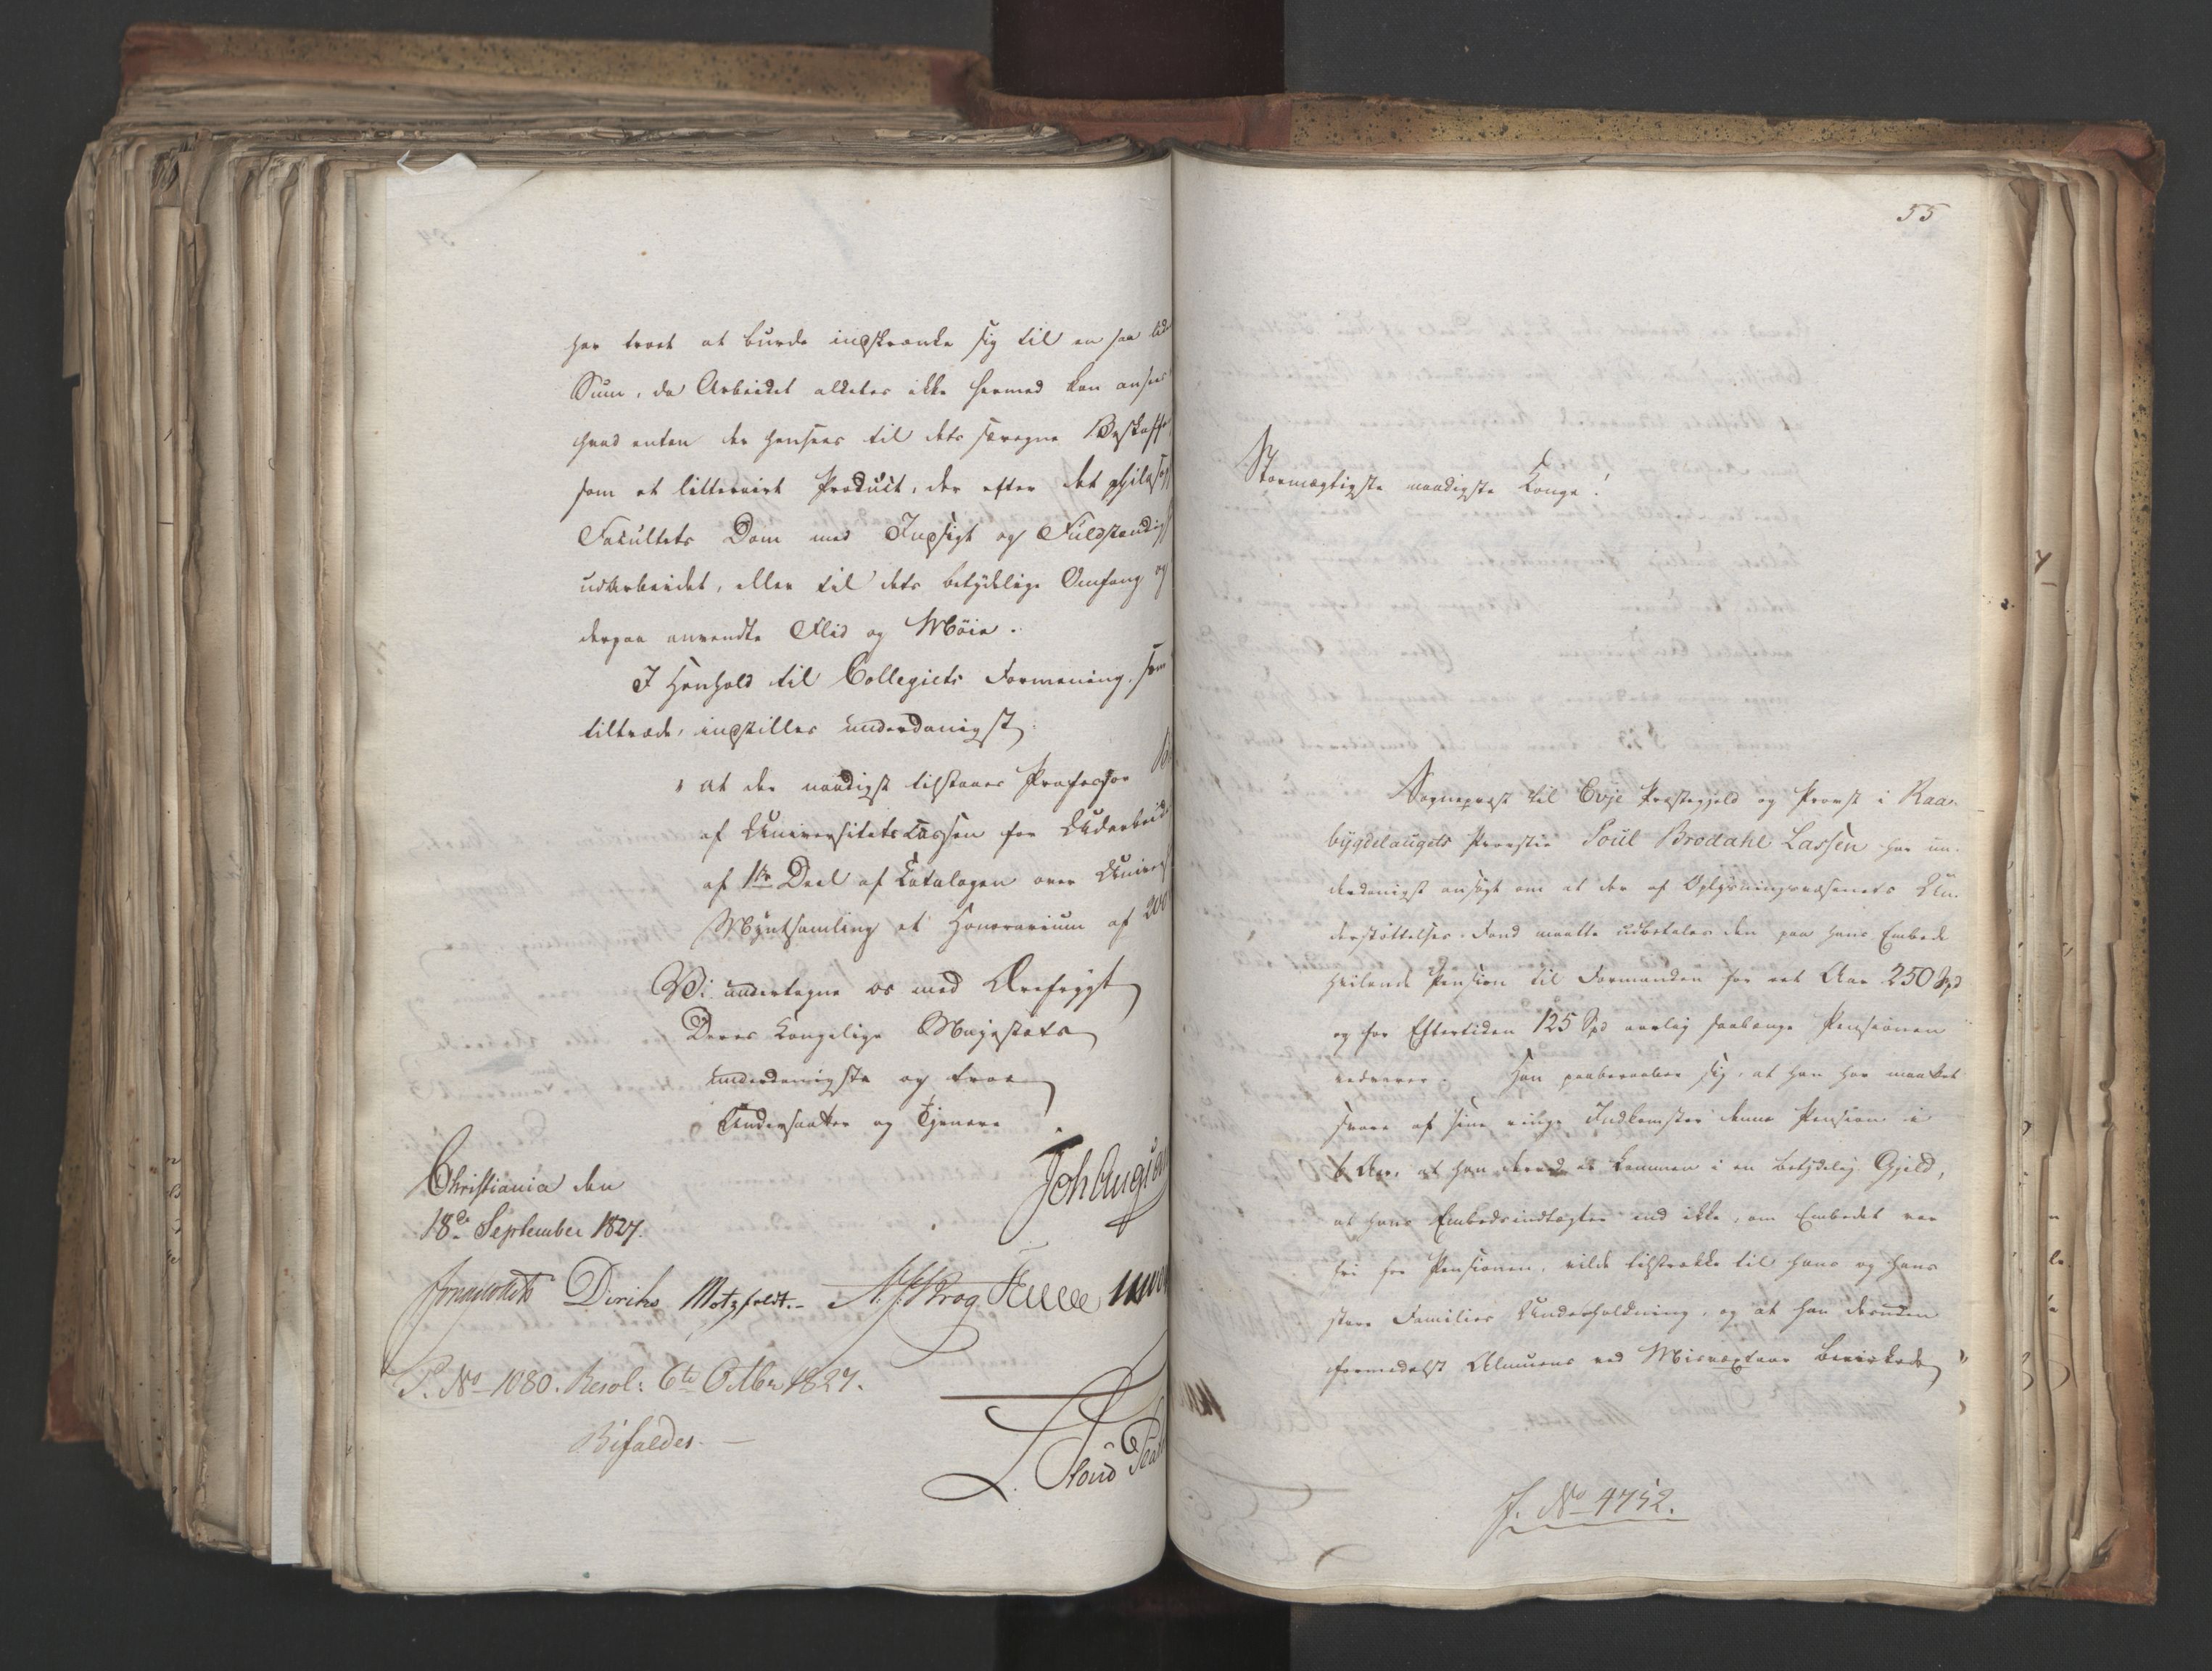 har troet at burde indskrænke sig til en saa lide
Sum, da Arbeidet aldeles ikke hermed kan ansees
hvad enten der hensees til dets særegne Beskaffe
som et litterairt Product, der efter det philosop
Facultets Dom med Indsigt og Fuldstændig
udarbeidet, eller til dets betydelige Omfang og
derpaa anvendte Flid og Möie.
I Henhold til Collegiets Formening, som
tiltræde, indstilles underdanigst
at der naadigst tilstaaes Professor
af Universitetscassen for Udarbeid
af 1ste Deel af Catalogen over Univers
Myntsamling et Honorarium af 200
Vi undertegne os med Ærefrygt
Deres Kongelige Majestæts
underdanigste og troe
Undersaatter og Tjenere
Christiania den
18de September 1827.
Joh Aug San
Diriks Motzfeldt.- Krog
P. No 1080. Resol: 6te Octbr 1827.
Bifaldes. —
55
Stormægtigste naadigste Konge!
Sognepræst til Evje Præstegjeld og Provst i Raa-
bygdelaugets Provstie Poul Brodahl Lassen har un-
derdanigst ansögt om at der af Oplysningsvæsenets Un-
derstöttelses-Fond maatte udbetales den paa hans Embede
hvilende Pension til Formanden for eet Aar 250 Spd
og for Eftertiden 125 Spd aarlig saalænge Pensionen
vedvarer. Han paaberaaber sig, at han har maattet
svare af sine ringe Indkomster denne Pension i
6 Aar, at han derved er kommen i en betydelig Gjeld,
at hans Embedsindtægter end ikke, om Embedet var
fri for Pensionen, vilde tilstrække til hans og hans
store Families Underholdning, og at han desuden
formedelst Almuens ved Misvæxtaar bevirkede
J. No 4752.